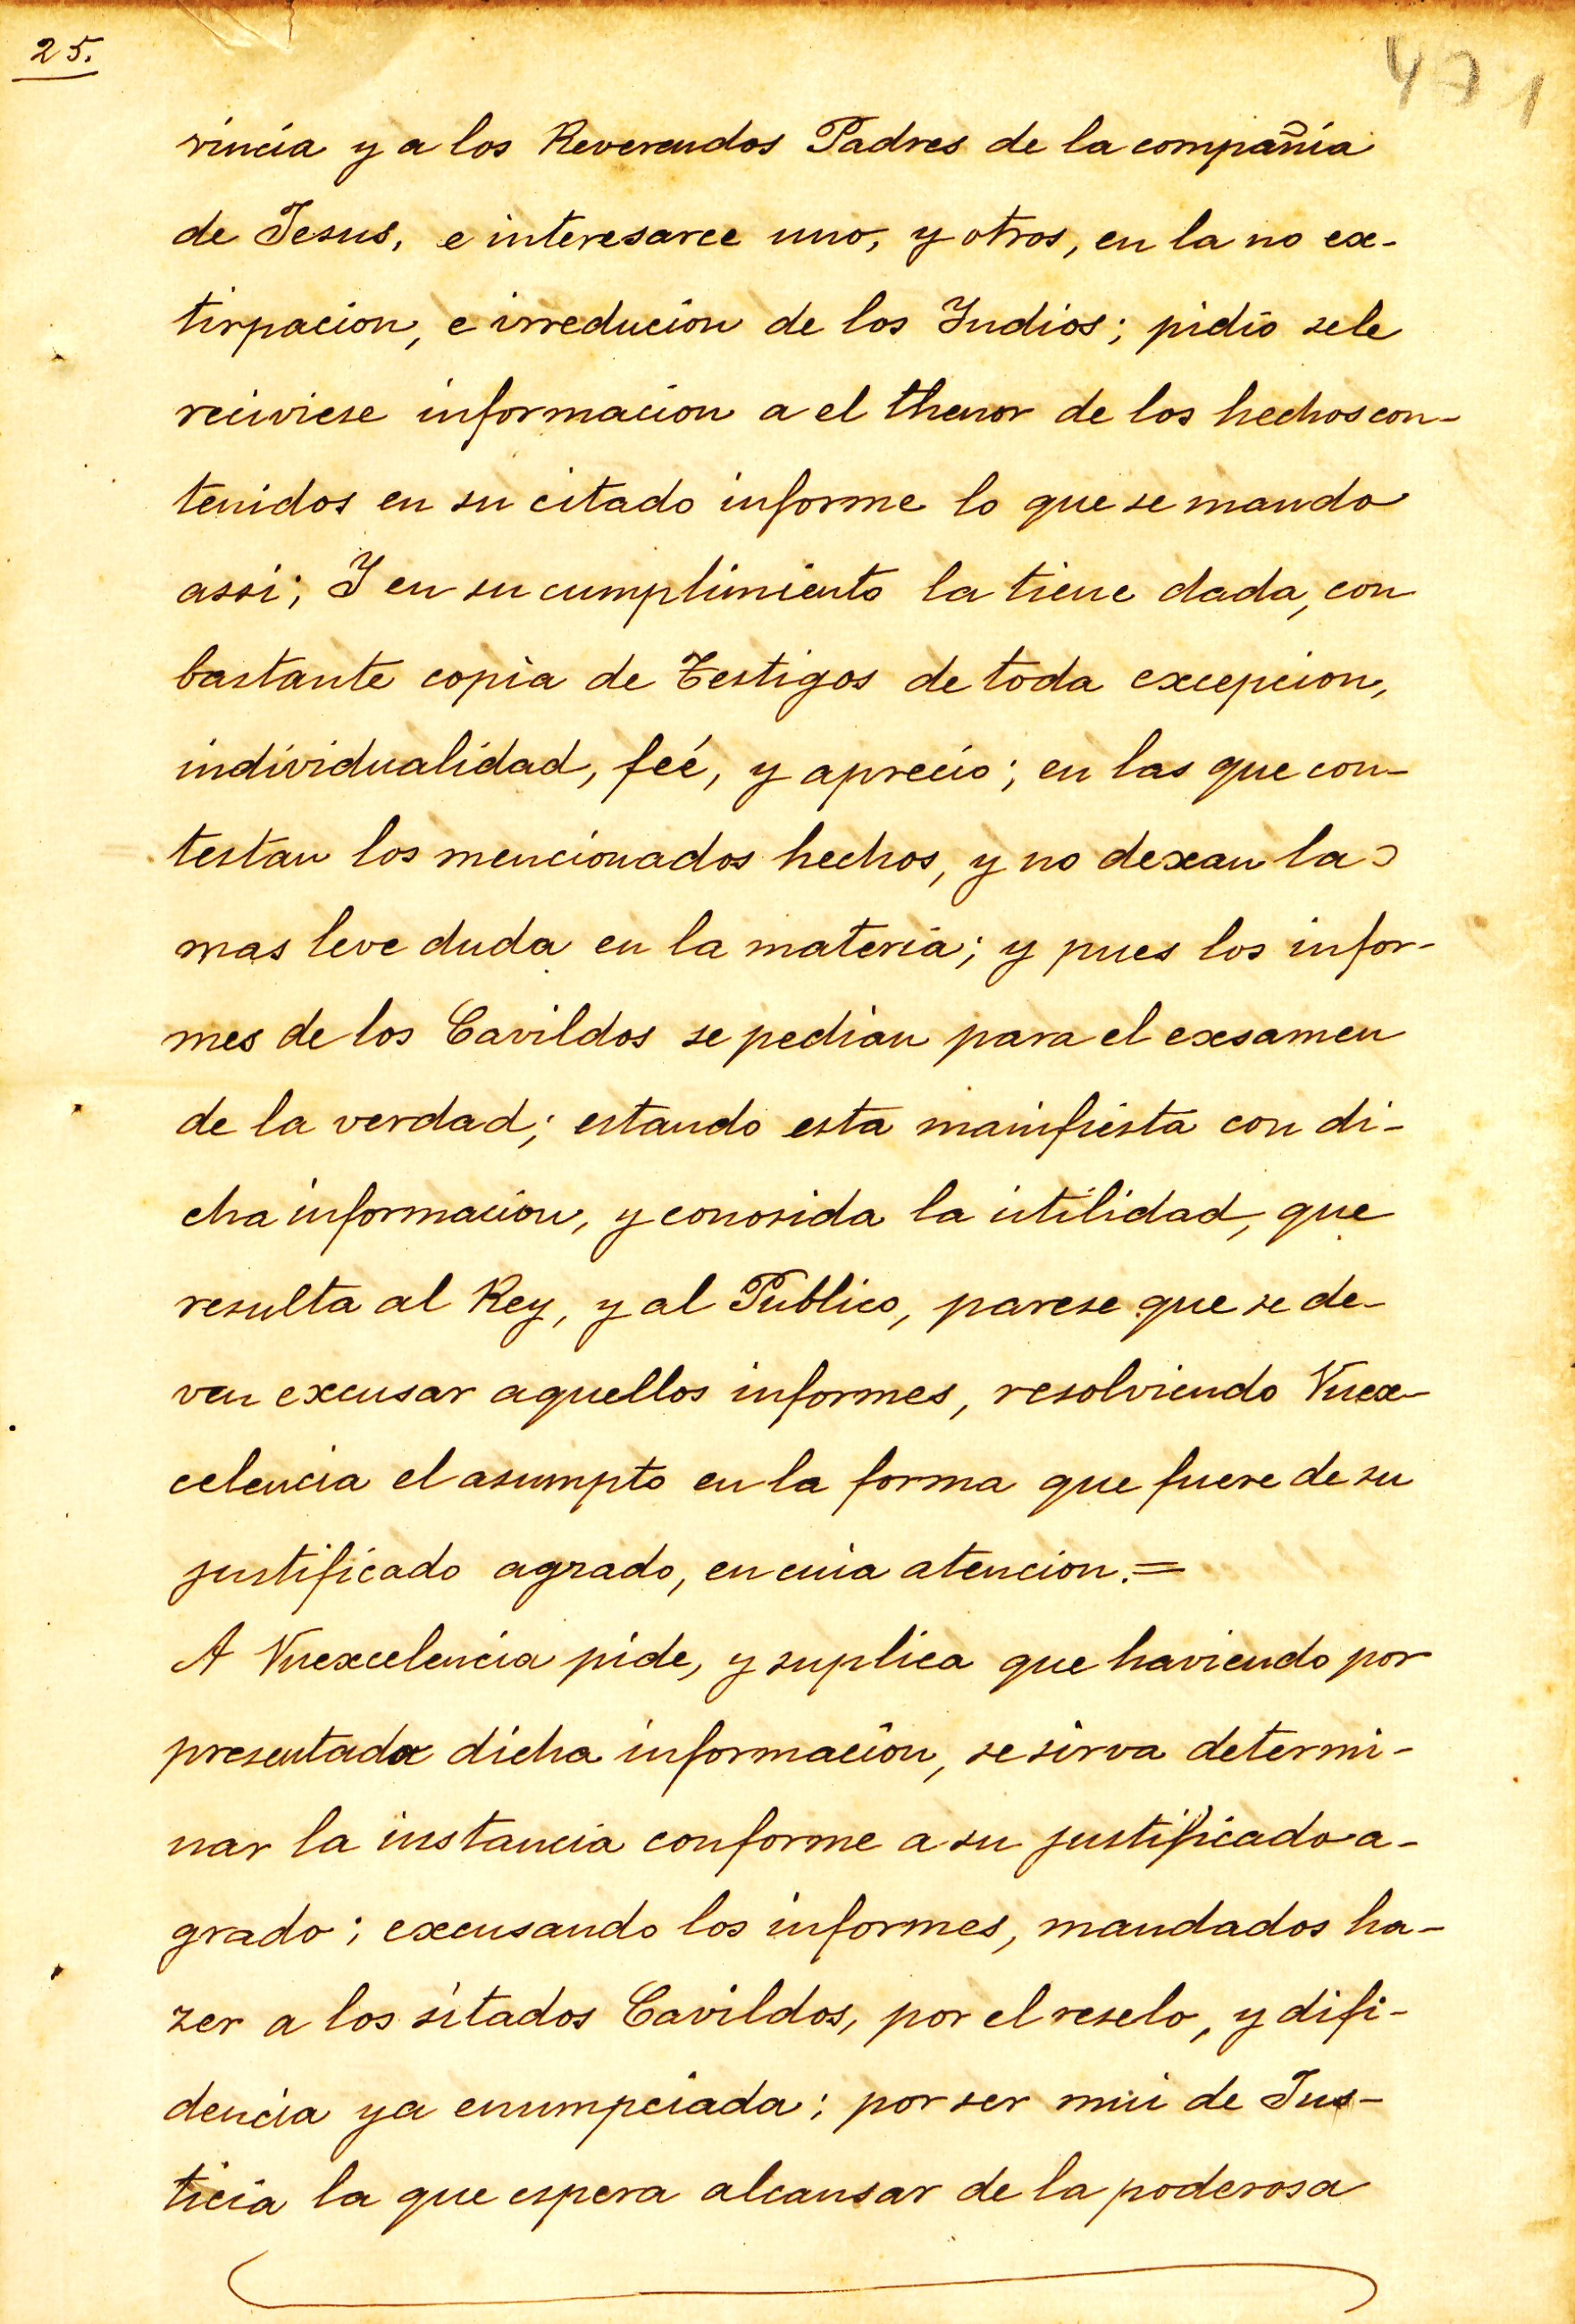 25.
471
vincia y a los Reverendos Padres de la compañía
de Jesus, e interesarce uno, y otros, en la no ex-
tirpacion, e irreducion de los Yndios; pidio sele
reciviese informacion a el thenor de los hechos con-
tenidos en su citado informe lo que se mando
assi; Y en su cumplimiento la tiene dada, con
bastante copia de Testigos de toda excepcion,
individualidad, feé, y aprecio; en las que con-
testan los mencionados hechos, y no dexan la
mas leve duda en la materia; y pues los infor-
mes de los Cavildos se pedian para el exsamen
de la verdad; estando esta mainfiesta con di-
cha informacion, y conosida la utilidad, que
resulta al Rey, y al Publico, parese que se de-
ven excusar aquellos informes, resolviendo Vuex-
celencia el asumpto en la forma que fuere de su
justificado agrado, en cuia atencion.=
A Vuexcelencia pide, y suplica que haviendo por
presentada dicha informacion, se sirva determi-
nar la instancia conforme a su justificado a-
grado; excusando los informes, mandados ha-
zer a los sitados Cavildos, por el reselo, y difi-
dencia ya enumpciada; por ser mui de Jus-
ticia la que espera alcansar de la poderosa